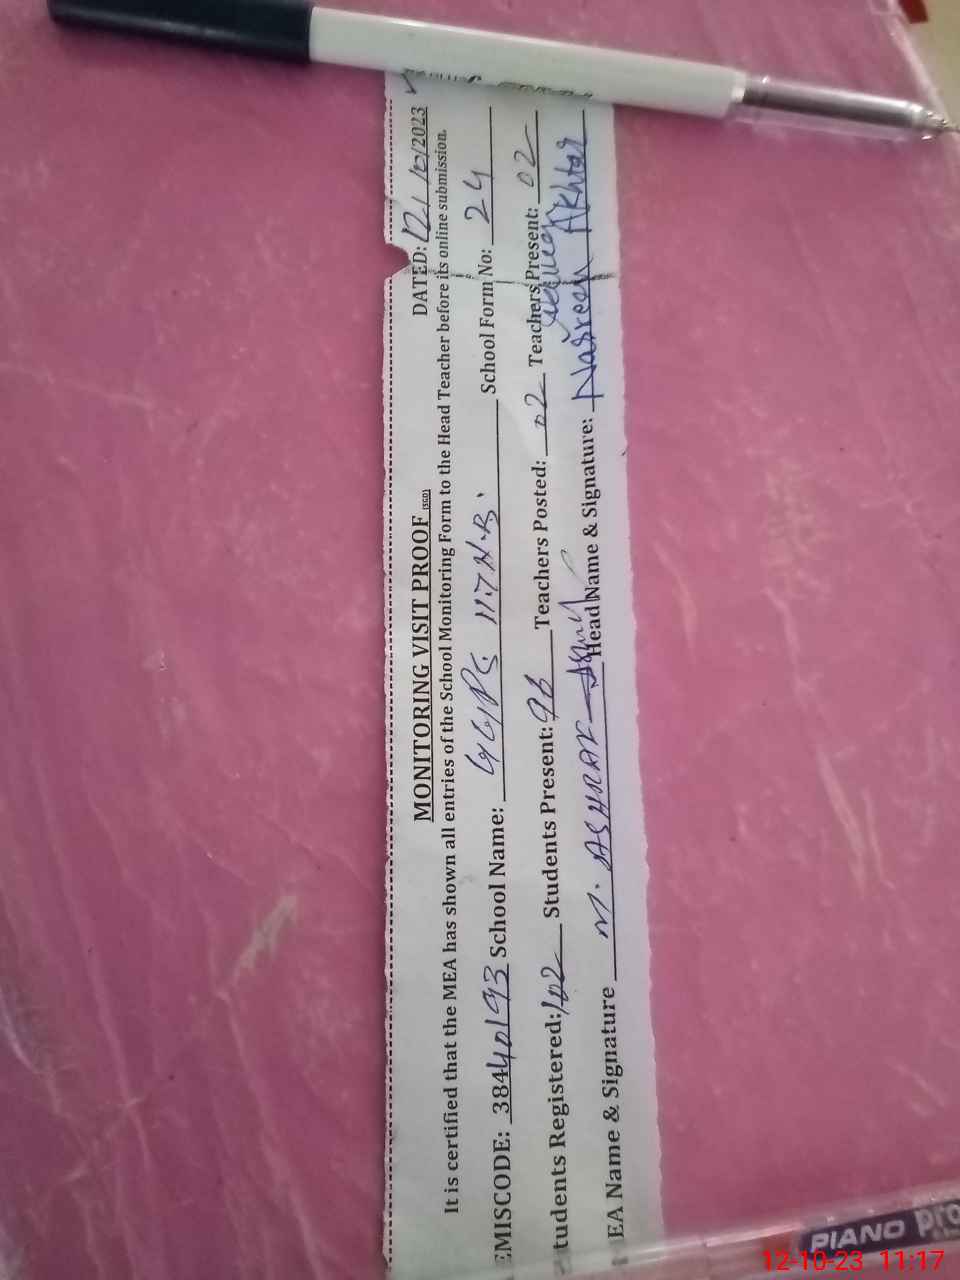 DATED: 12/10/2023
MONITORING VISIT PROOF (SED)
It is certified that the MEA has shown all entries of the School Monitoring Form to the Head Teacher before its online submission.
EMISCODE: 38440193 School Name: GGPS 117 N.B. School Form No: 24
tudents Registered: 102 Students Present: 96 Teachers Posted: 02 Teachers Present: 02
EA Name & Signature M. ASHRAF Head Name & Signature: Nasreen Akhtar
PIANO pro
12-10-23 11:17